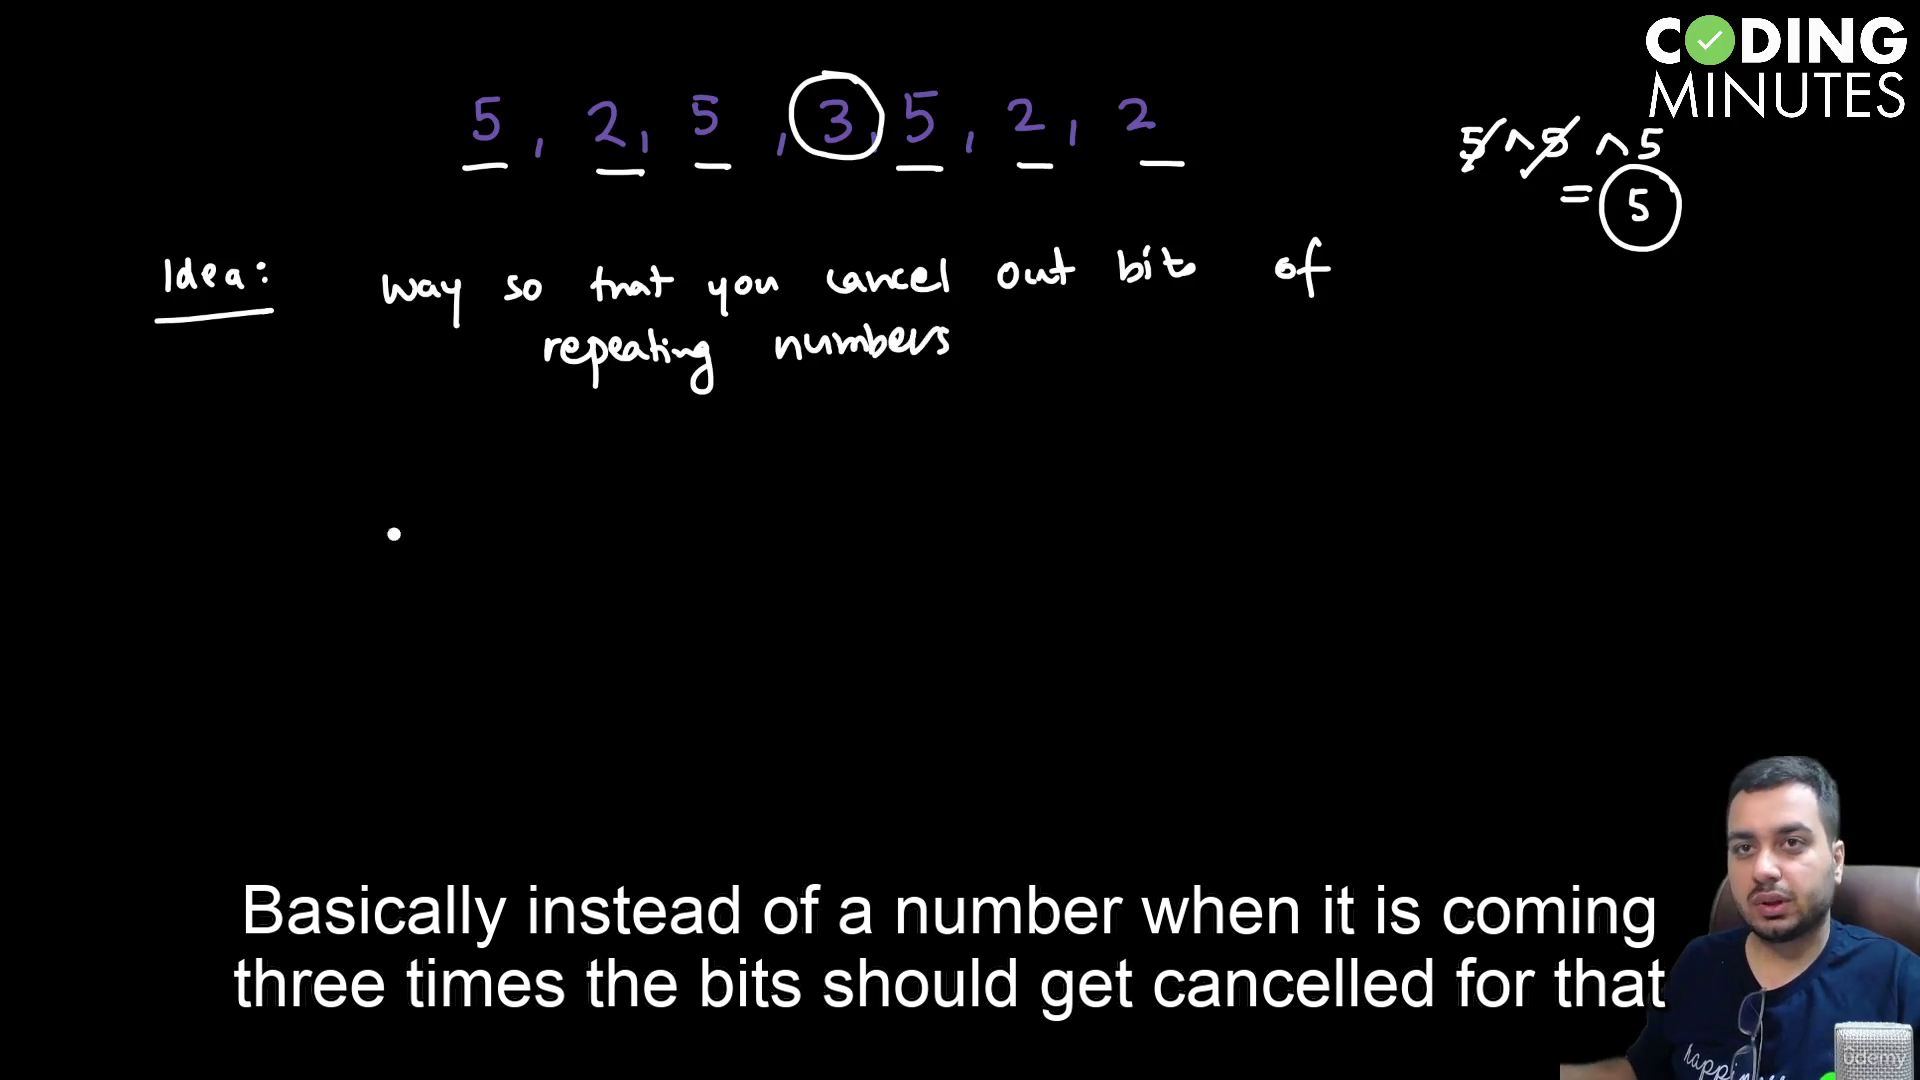 CODING
MINUTES
5, 2, 5, 3, 5, 2, 2
5 ^ 5 ^ 5
= 5
Idea: way so that you cancel out bits of
repeating numbers
Basically instead of a number when it is coming
three times the bits should get cancelled for that
happiness
udemy